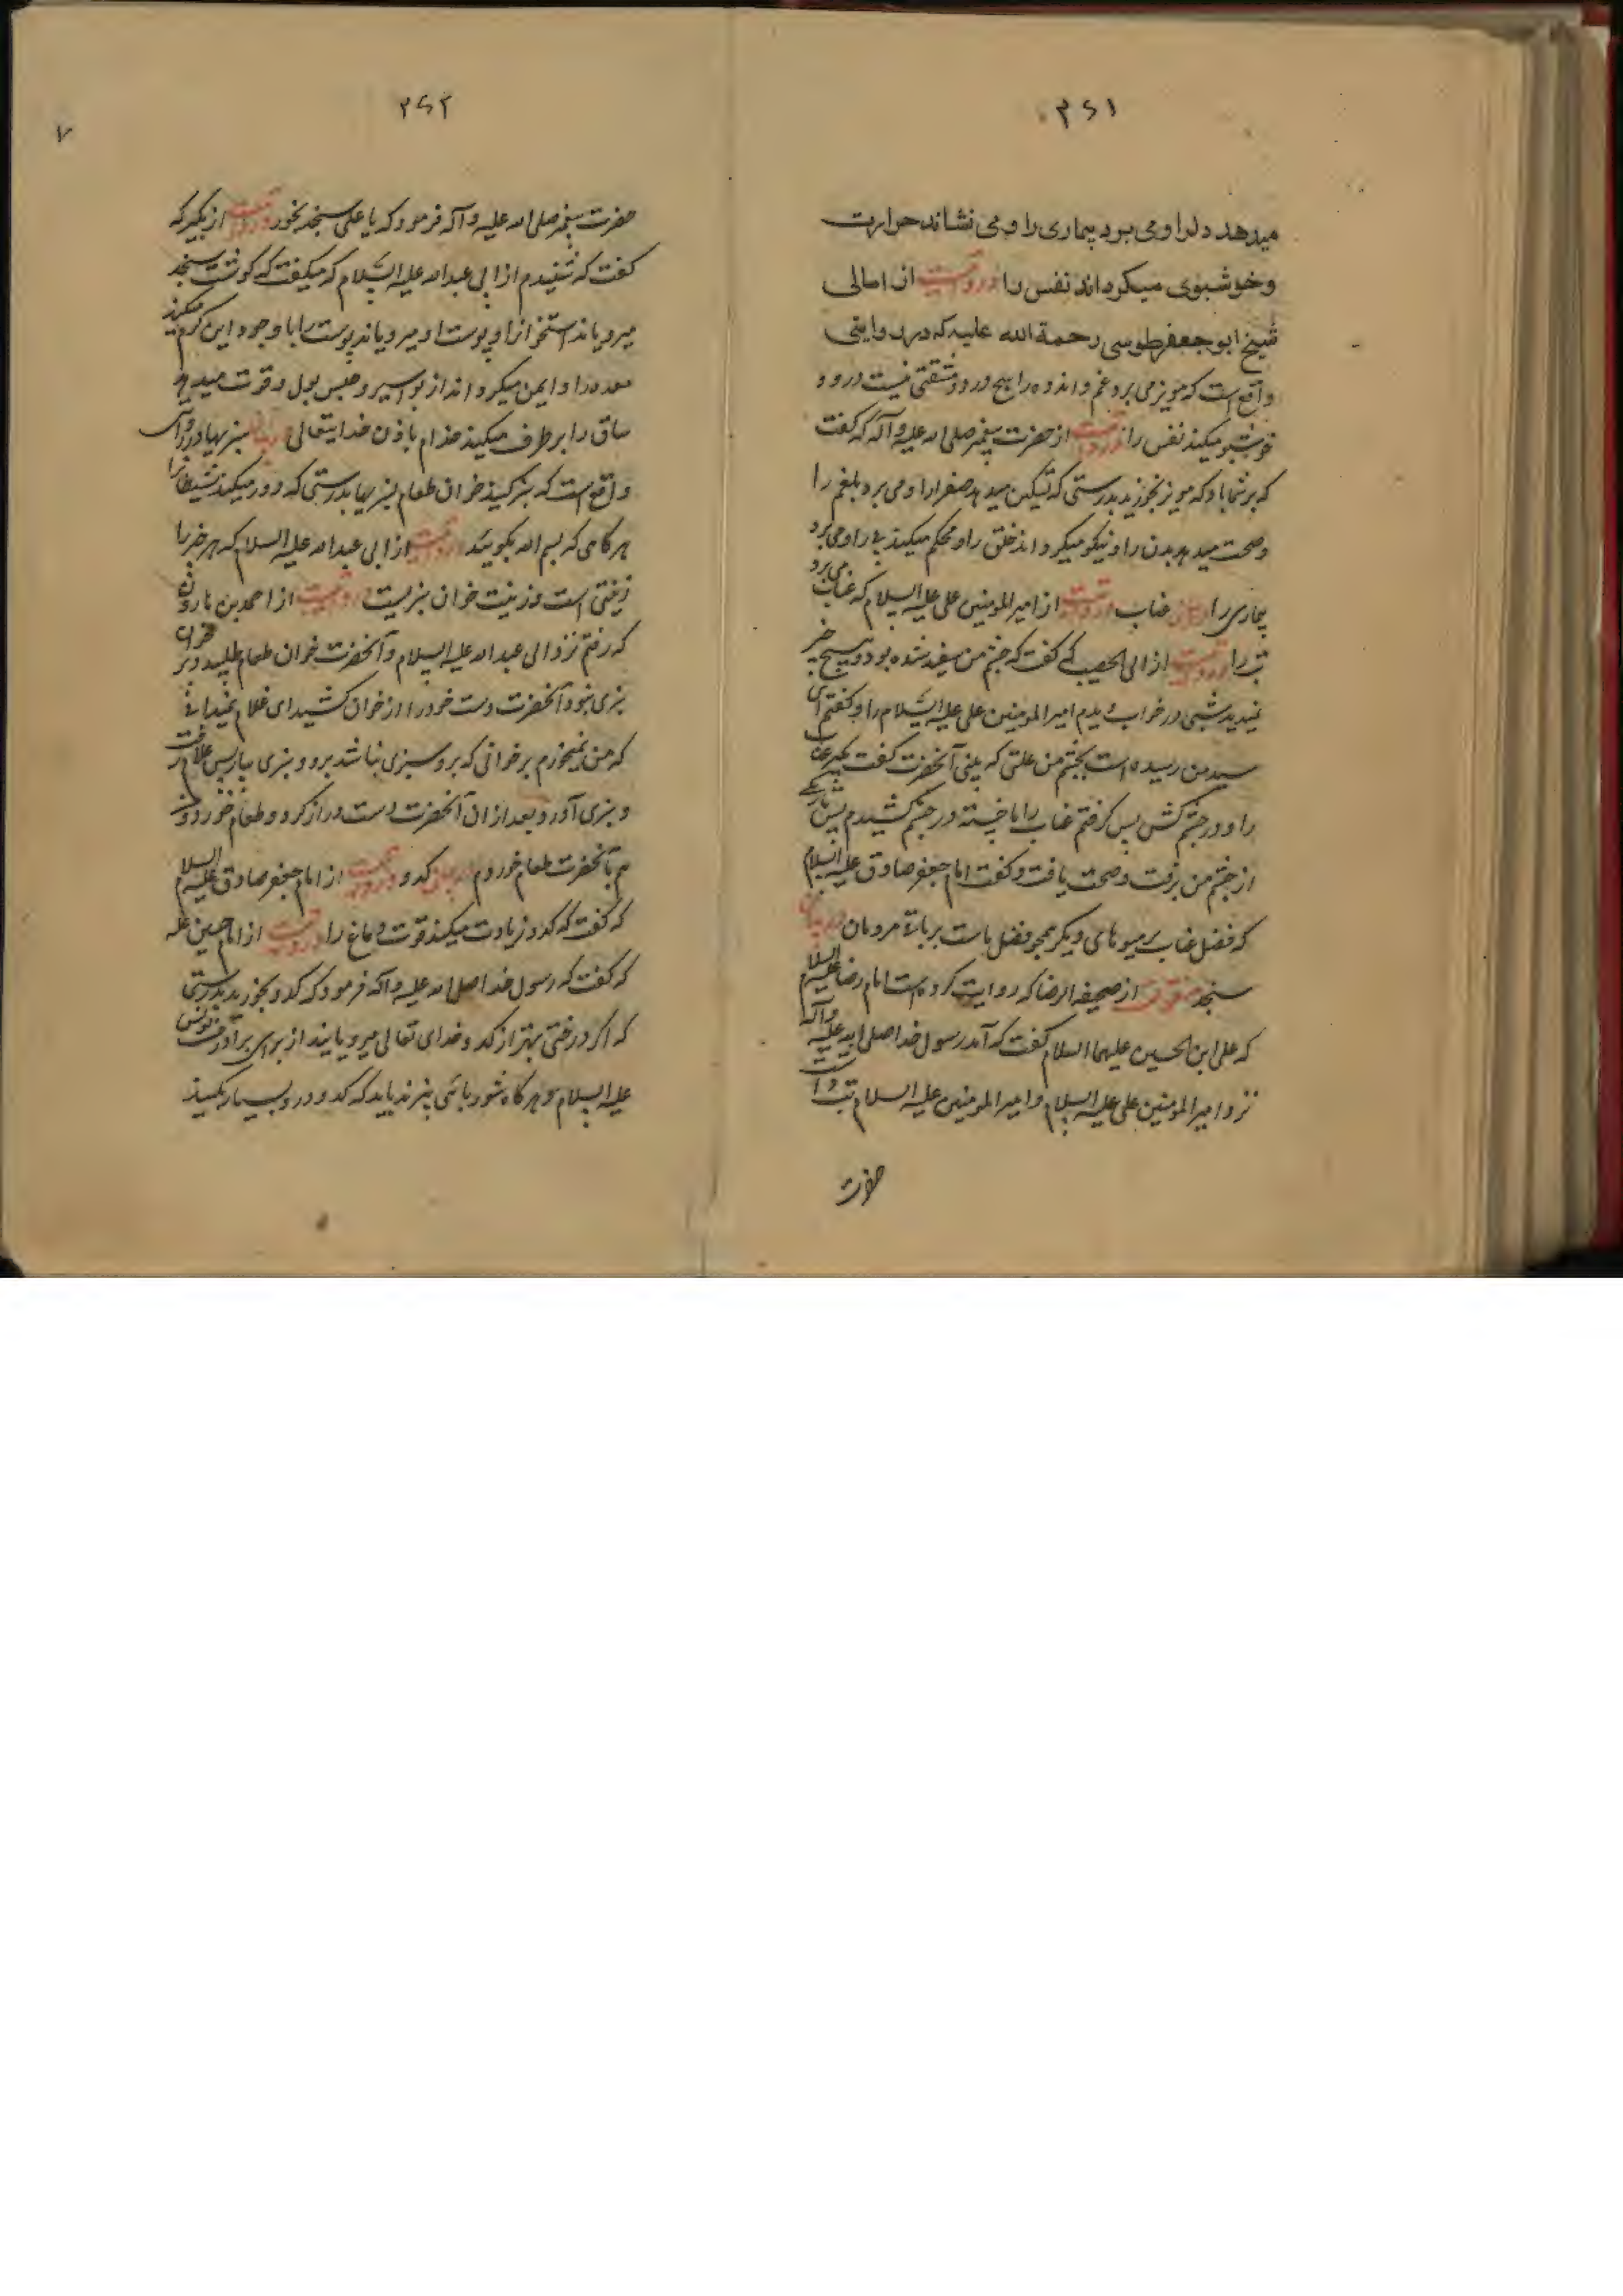 ۳۶۱
میدهد دل را و می برد بیماری را و می نشاند حرارت
و خوشبوی میکرداند نفس را و روایتست از امالی
شیخ ابو جعفر طوسی رحمة الله علیه که در روایتی
واقع است که مویز می برد غم و اندوه را هیچ درد و مشقتی نیست در و و
خوشبو میکند نفس را و روایتست از حضرت پیغمبر صلی الله علیه و آله که گفت
که بر شما باد که مویز بخورید بدرستی که تسکین میدهد صفرا را و می برد بلغم را
و صحت میدهد بدن را و نیکو میکرداند خلق را و محکم میکند پی را و می برد
بیماری را در بیان عناب و روایتست از امیر المومنین علی علیه السلام که عناب می برد
تب را و روایتست از ابی الحصیب که گفت که چشم من سفید شده بود و هیچ چیز
نمیدید شبی در خواب دیدم امیر المومنین علی علیه السلام را و گفتم ای
سید من رسیده است بچشم من علتی که بینی آنحضرت گفت بگیر عناب
را و در چشم کش پس گرفتم عناب را با خسته در چشم کشیدم پس تاریکی
از چشم من برفت و صحت یافت و گفت امام جعفر صادق علیه السلام
که فضل عناب بر میوهای دیگر همچو فضل ماست بر باقی مردمان در بیان
سنجد منقولست از صحیفه الرضا که روایت کرده است امام رضا علیه السلام
که علی ابن الحسین علیهما السلام گفت که آمد رسول خدا صلی الله علیه و آله
نزد امیر المومنین علی علیه السلام و امیر المومنین علیه السلام تب داشت
حضرت
۳۶۲
۷
حضرت پیغمبر صلی الله علیه و آله فرمود که یا علی سنجد بخور و روایتست از بکیر که
گفت که شنیدم از ابی عبد الله علیه السلام که میگفت که گوشت سنجد
میرویاند استخوان را و پوست او میرویاند پوست را با وجود این گرم میکند
معده را و ایمن میکرداند از بواسیر و حبس بول و قوت میدهد
ساق را برطرف میکند جذام باذن خدایتعالی در بیان سبزیها در روایتی
واقع است که سبز کنید خوان طعام بسبزیها بدرستی که دور میکند شیطان را
هرگاهی که بسم الله بگویید و روایتست از ابی عبد الله علیه السلام که هر چیز را
زینتی است و زینت خوان سبزیست و روایتست از احمد بن هارون
که رفتم نزد ابی عبد الله علیه السلام و آنحضرت خوان طعام طلبید و بر خوان
سبزی نبود آنحضرت دست خود را از خوان کشید ای غلام نمیدانی
که من نمیخورم بر خوانی که برو سبزی نباشد برو و سبزی بیار پس غلام رفت
و سبزی آورد و بعد از ان آنحضرت دست دراز کرد و طعام خورد و من
هم با آنحضرت طعام خوردم در بیان کدو و روایتست از امام جعفر صادق علیه السلام
که گفت که کدو زیادت میکند قوت دماغ را و روایتست از امام حسین علیه
که گفت که رسول خدا صلی الله علیه و آله فرمود که کدو بخورید بدرستی
که اگر درختی بهتر از کدو خدای تعالی میرویانید از برای برادرم یونس
علیه السلام و هرگاه شوربائی پزند باید که کدو در و بسیار بکنید